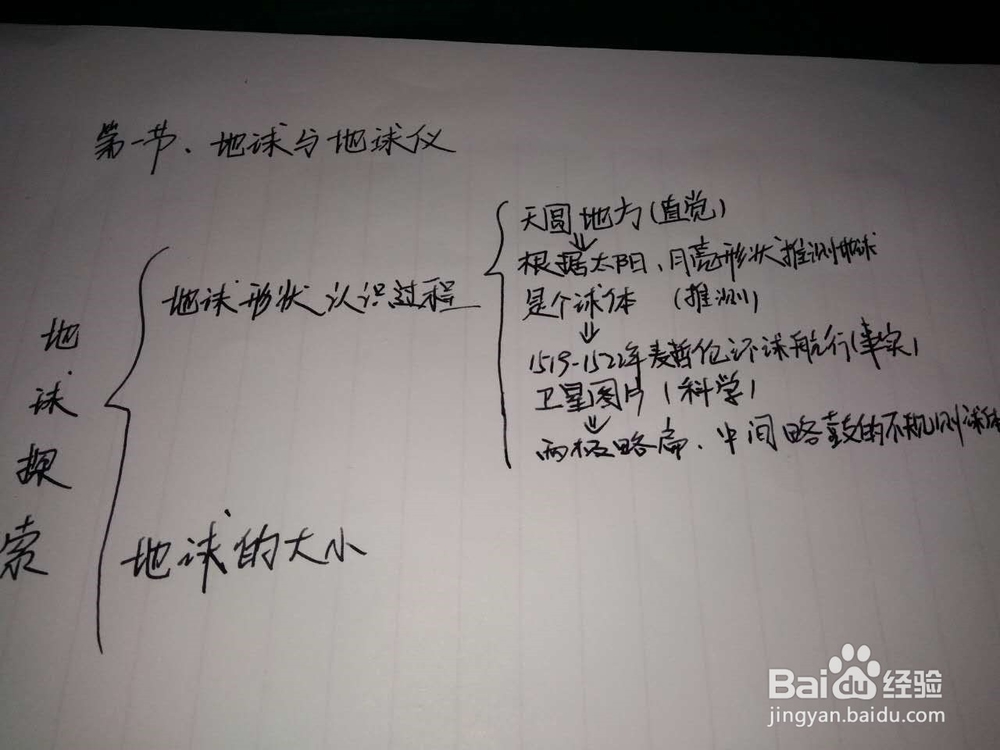 第一节、地球与地球仪
地球探索
地球形状认识过程
天圆地方(直觉)
⇓
根据太阳、月亮形状推测地球
是个球体 (推测)
⇓
1519-1522年麦哲伦环球航行(事实)
卫星图片(科学)
⇓
两极略扁、中间略鼓的不规则球体
地球的大小
Baidu经验
jingyan.baidu.com